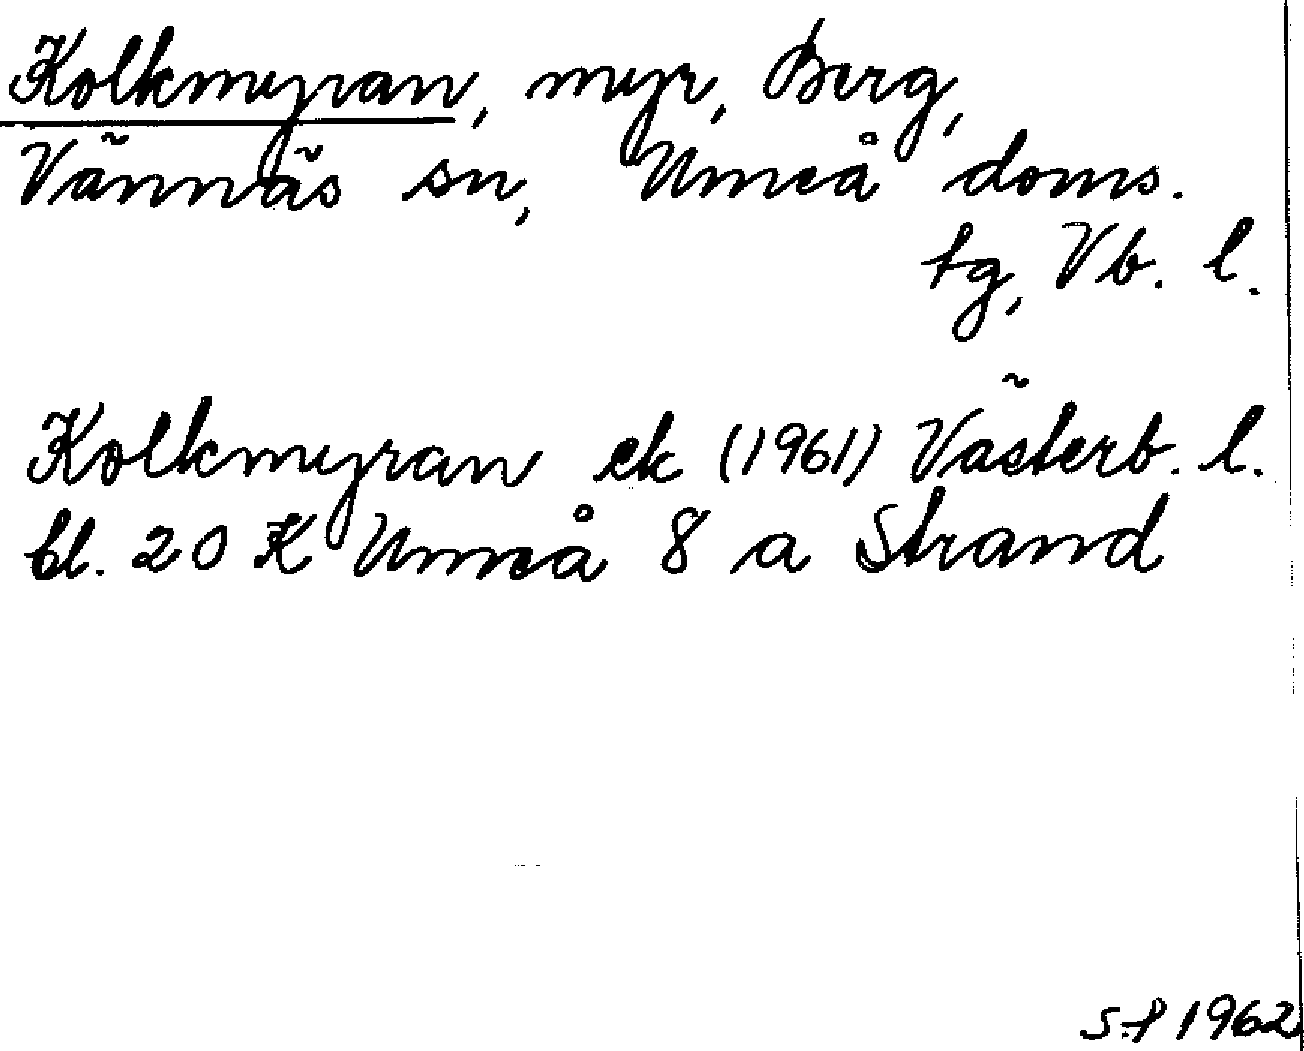 Kolkmyran, myr, Berg,
Vännäs sn, Umeå doms.
tg, Vb. l.
Kolkmyran ek (1961) Västerb. l.
bl. 20 K Umeå 8 a Strand
1962